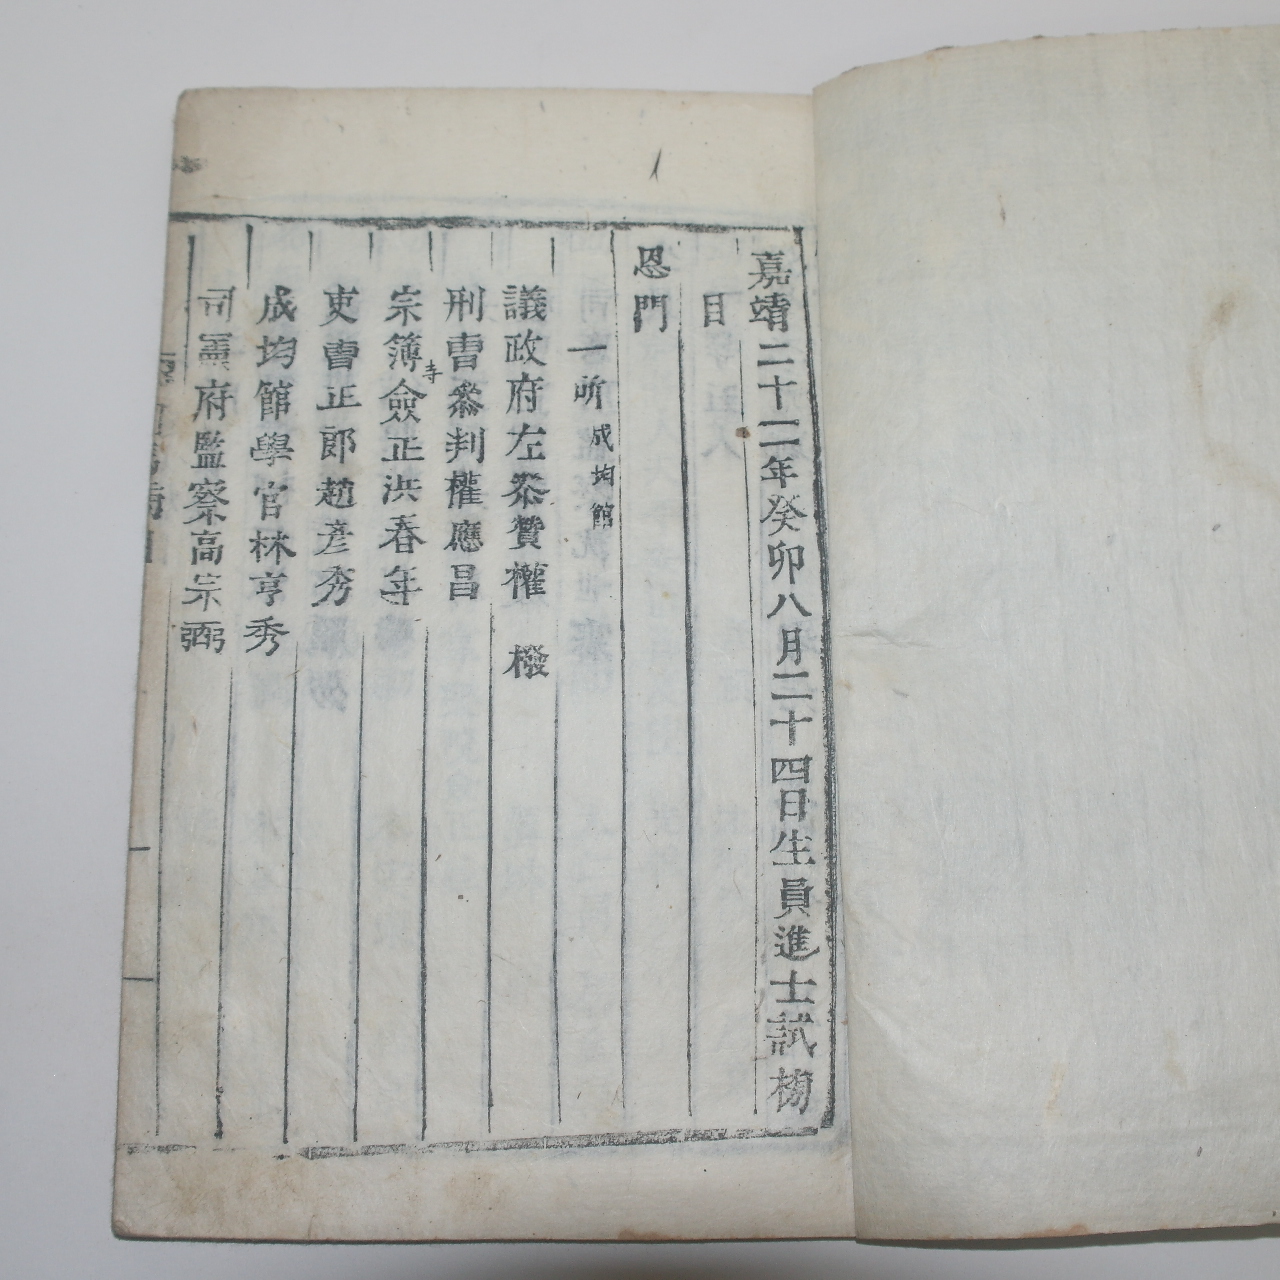 嘉靖二十二年癸卯八月二十四日生員進士試榜
目
恩門
一所成均館
議政府左參贊權橃
刑曹叅判權應昌
宗簿寺僉正洪春年
吏曹正郎趙彦秀
成均館學官林亨秀
司憲府監察高宗弼